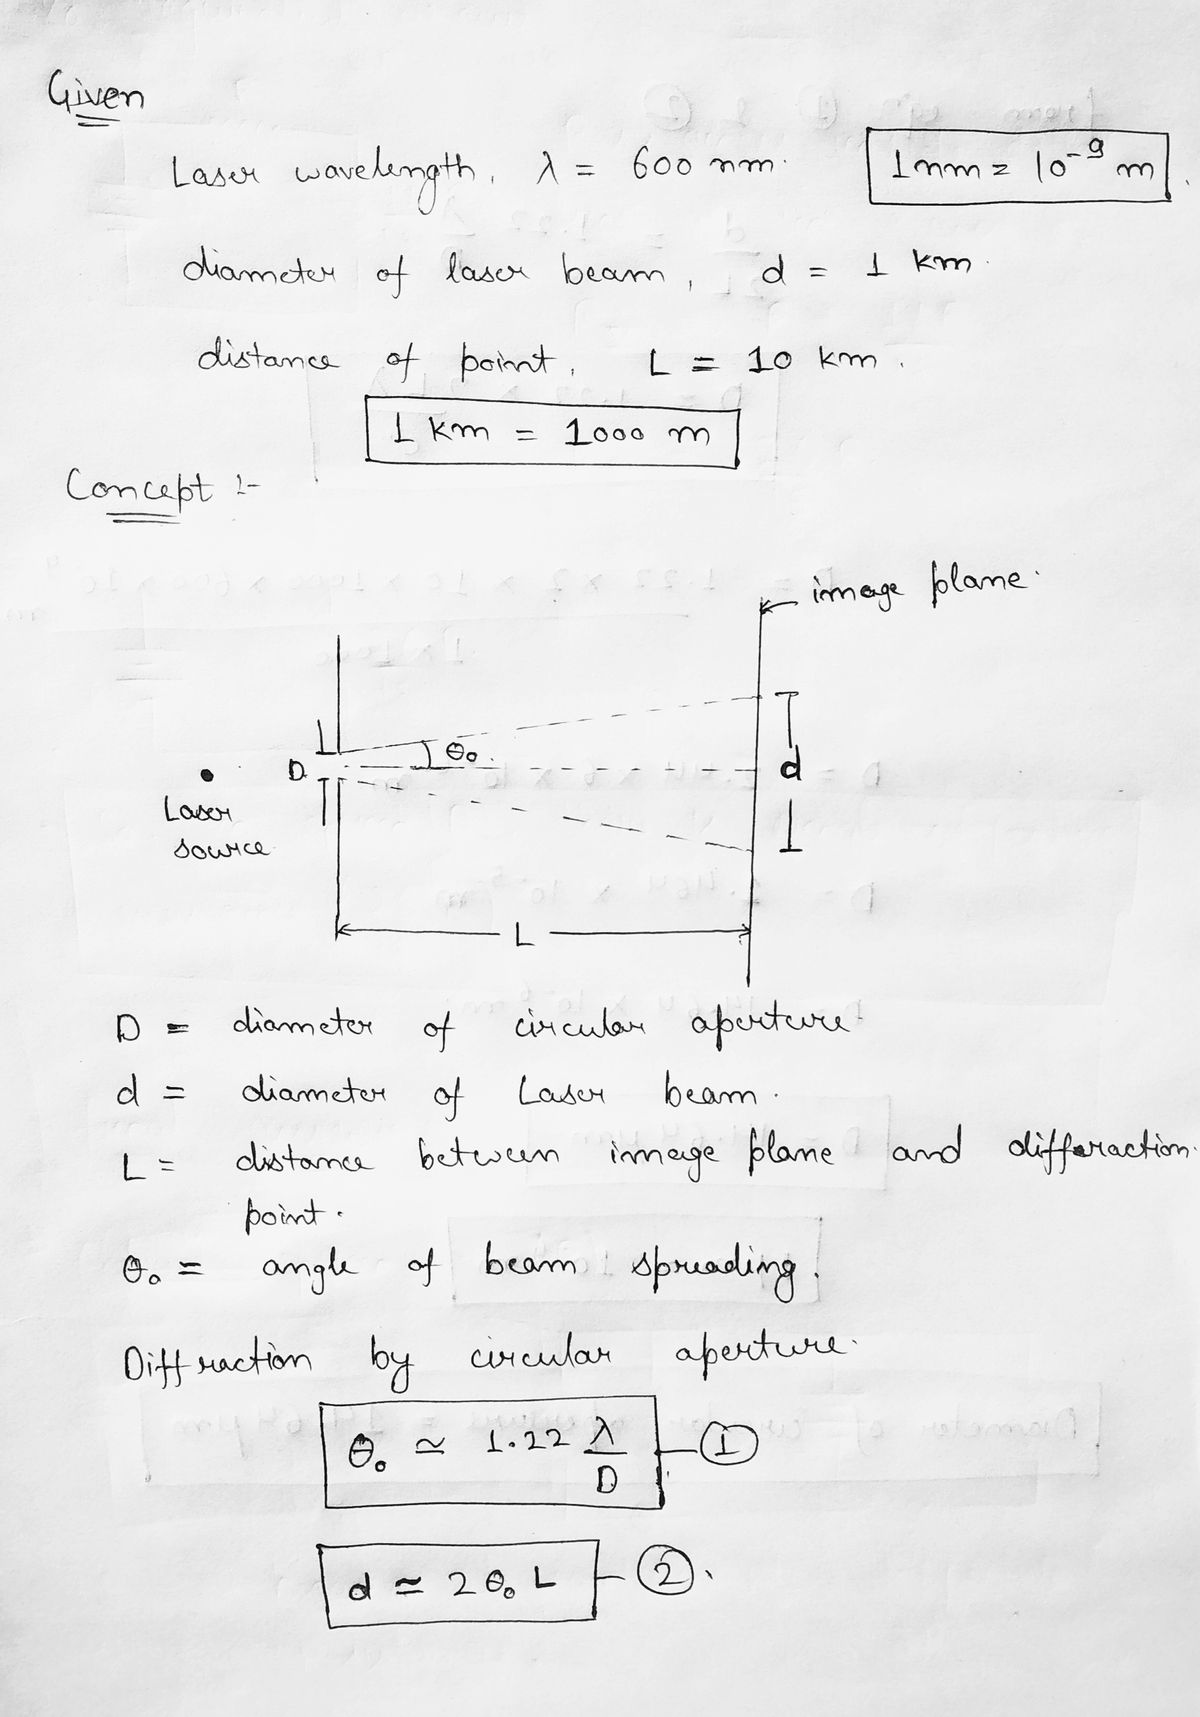 Given
Laser wavelength, λ = 600 nm.
1nm = 10⁻⁹ m
diameter of laser beam, d = 1 km.
distance of point, L = 10 km.
1 km = 1000 m
Concept :-
image plane.
θ₀.
D.
d
Laser
source
L
D = diameter of circular aperture
d = diameter of Laser beam.
L = distance between image plane and differaction.
point.
θ₀ = angle of beam spreading.
Diffraction by circular aperture.
θ₀ ≃ 1.22 λ/D — ①
d ≃ 2θ₀ L — ②.